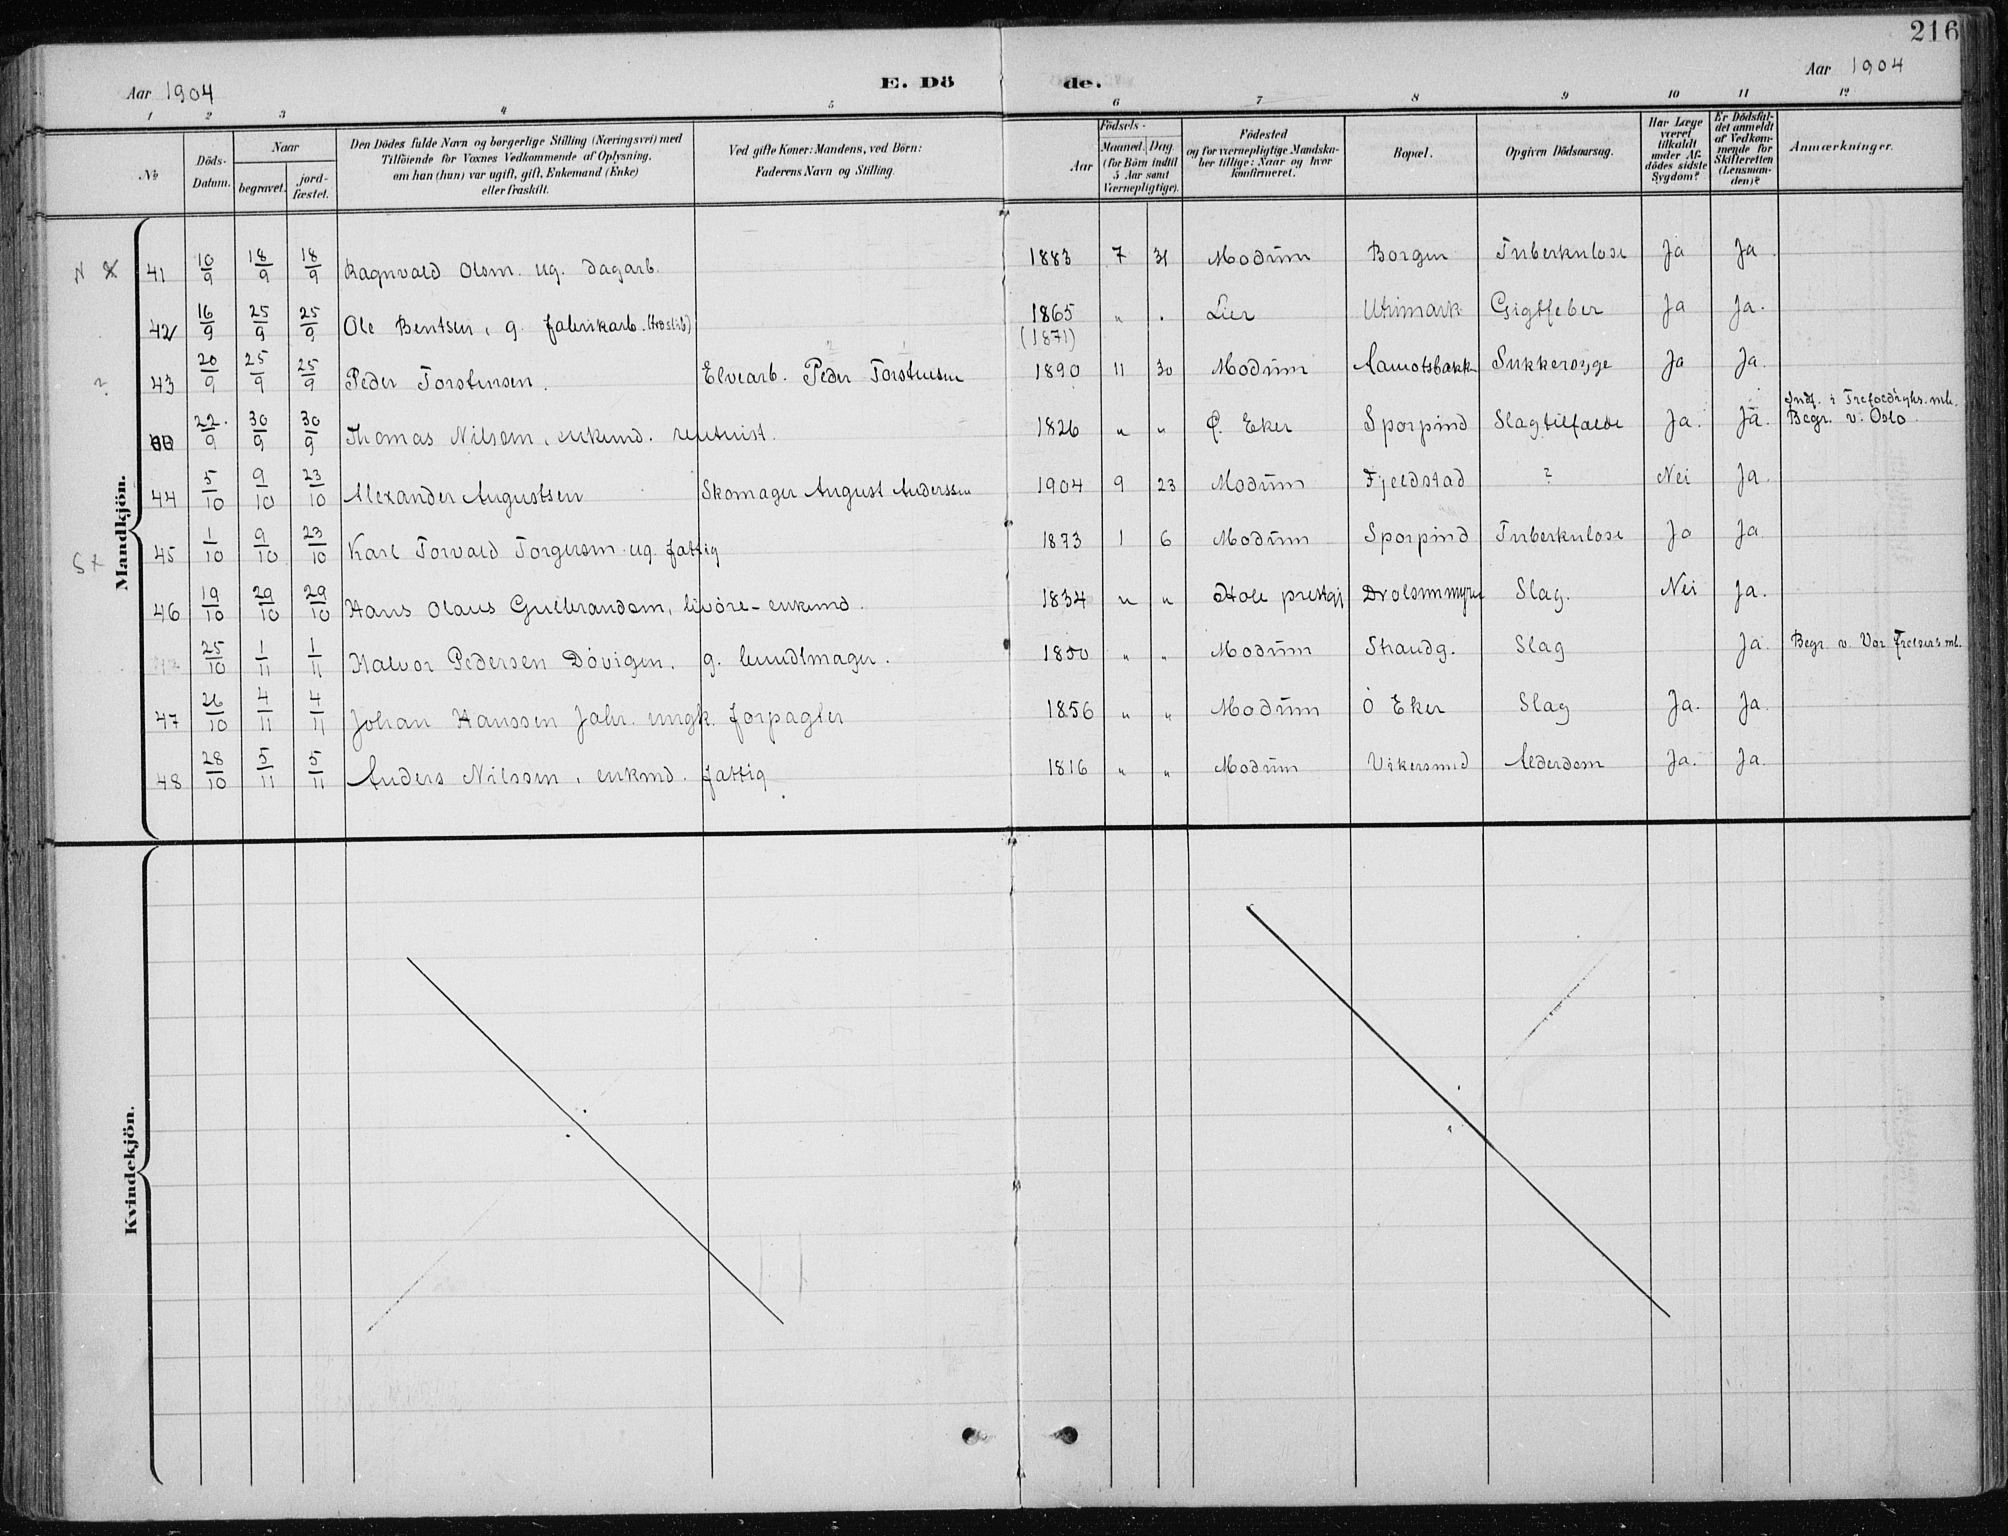 216
Aar 1904
E. Dö de.
Aar 1904
1 2 3 4 5 6 7 8 9 10 11 12
№
Döds-Datum.
Naar
begravet.
jord-fæstet.
Den Dödes fulde Navn og borgerlige Stilling (Næringsvei) med
Tilföiende for Voxnes Vedkommende af Oplysning,
om han (hun) var ugift, gift, Enkemand (Enke)
eller fraskilt.
Ved gifte Koner: Mandens, ved Börn:
Faderens Navn og Stilling.
Födsels-
Aar
Maaned. Dag.
(for Börn indtil
5 Aar samt
Værnepligtige).
Födested
og for værnepligtige Mandska-
ber tillige: Naar og hvor
konfirmeret.
Bopæl.
Opgiven Dödsaarsag.
Har Læge
været
tilkaldt
under Af-
dödes sidste
Sygdom?
Er Dödsfal-
det anmeldt
af Vedkom-
mende for
Skifteretten
(Lensman-
den)?
Anmærkninger.
Mandkjön.
N 41 10/9 18/9 18/9 Ragnvald Olsen. ug. dagarb. 1883 7 31 Modum Borgen Tuberkulose Ja Ja
42 16/9 25/9 25/9 Ole Bentsen, g. fabrikarb. (træslib) 1865 " " Lier Gigtfeber Ja Ja.
(1871)
? 43 20/9 25/9 25/9 Peder Torstensen. Elvearb. Peder Torstensen 1890 11 30 Modum Aamotsbakk Sukkersyge Ja Ja.
22/9 30/9 30/9 Thomas Nilsen, enkemd. rentenist. 1826 " " Ø. Eker Sporpind Slagtilfælde Ja. Ja. Indf. i Trefoldighs. mh.
Begr. v. Oslo.
44 5/10 9/10 23/10 Alexander Augustsen Skomager August Anderssen 1904 9 23 Modum Fjeldstad ? Nei Ja.
S x 45 1/10 9/10 23/10 Karl Torvald Torgersen ug. fattig 1873 1 6 Modum Sporpind Tuberkulose Ja Ja
46 19/10 29/10 29/10 Hans Olaus Gulbrandsen, livøre-enkemd. 1834 " " Hole prestgj Drolsummyren Slag. Nei Ja.
25/10 1/11 1/11 Halvor Pedersen Døvigen, g. bundtmager. 1850 " " Modum Strandg. Slag Ja. Begr. v. Vor Frelsers mh.
47 26/10 4/11 4/11 Johan Hanssen Jahr. ungk. forpagter 1856 " " Modum Ö Eker Slag Ja. Ja.
48 28/10 5/11 5/11 Anders Nilssen, enkmd. fattig 1816 " " Modum Vikersund Alderdom Ja. Ja.
Kvindekjön.